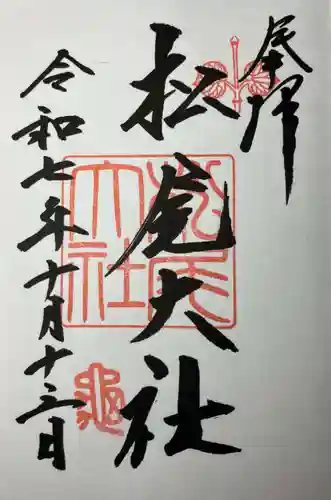 奉拝
松尾大社
令和七年十月十三日
松尾大社